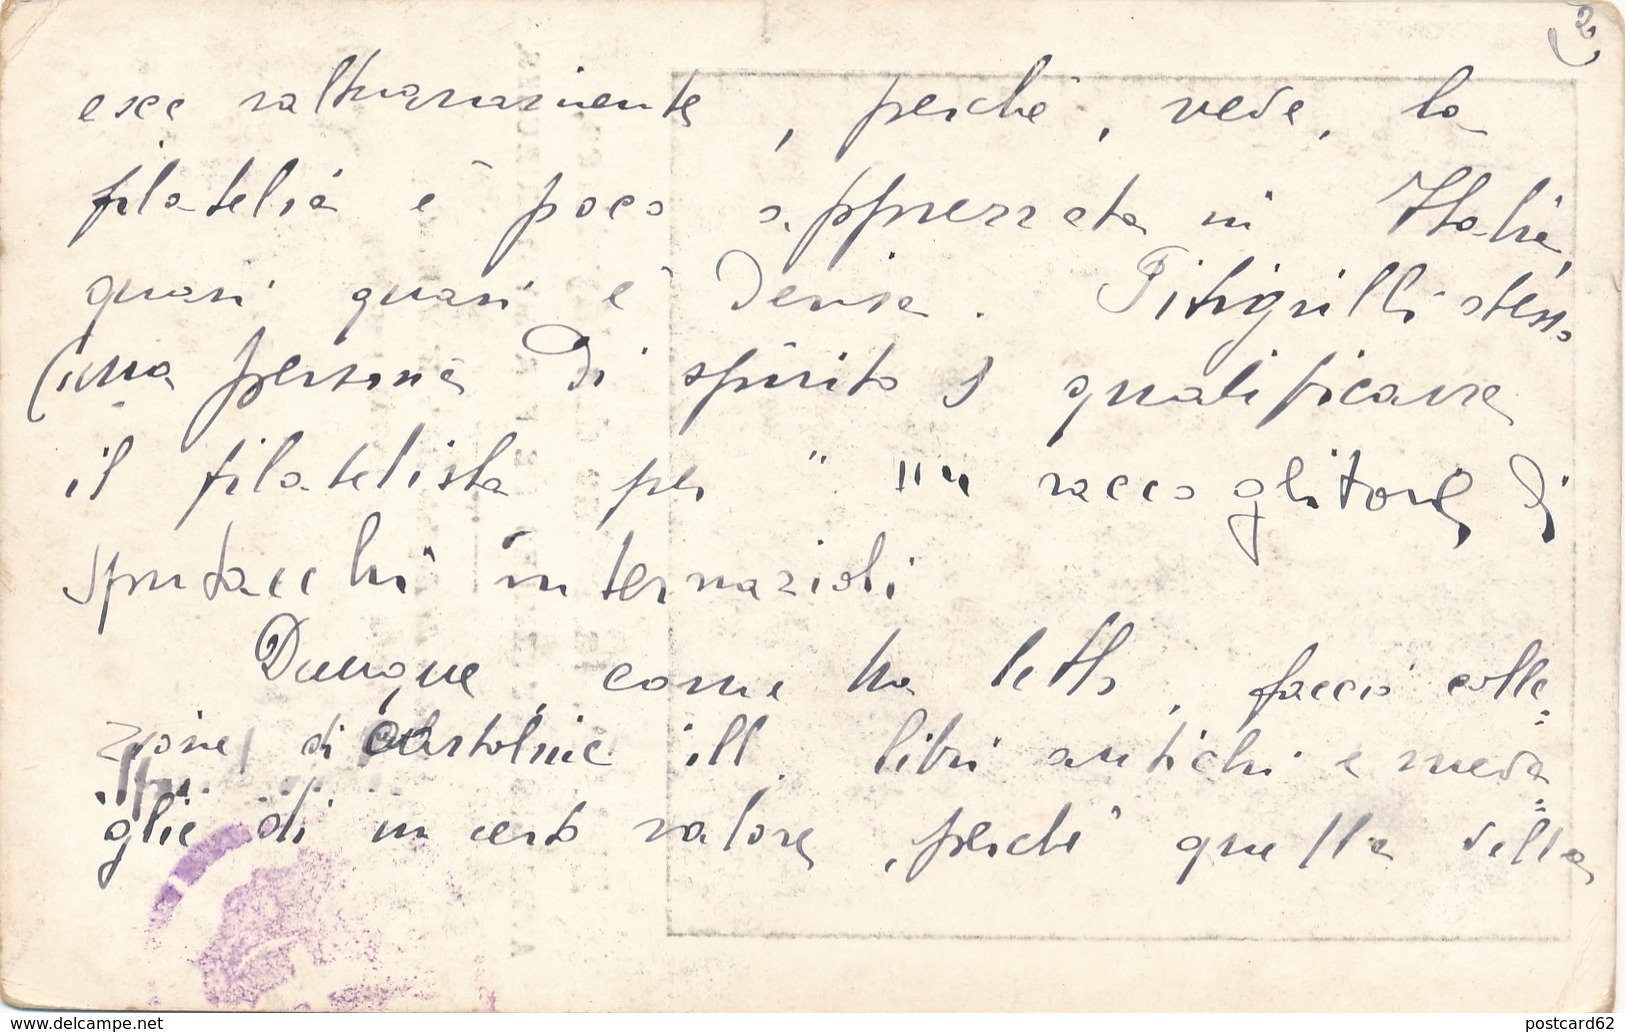 2,
esce saltuariamente, perchè, vede, la
filatelia è poco apprezzata in Italia,
quasi quasi è derisa. Pitigrilli stesso
(una persona di spirito) qualificava
il filatelista per " un raccoglitore di
sputacchi" internazioli
Dunque, come ha letto, faccio colle=
zione di cartoline ill. libri antichi e meda=
glie di un certo valore, perchè quella della
www.delcampe.net
postcard62